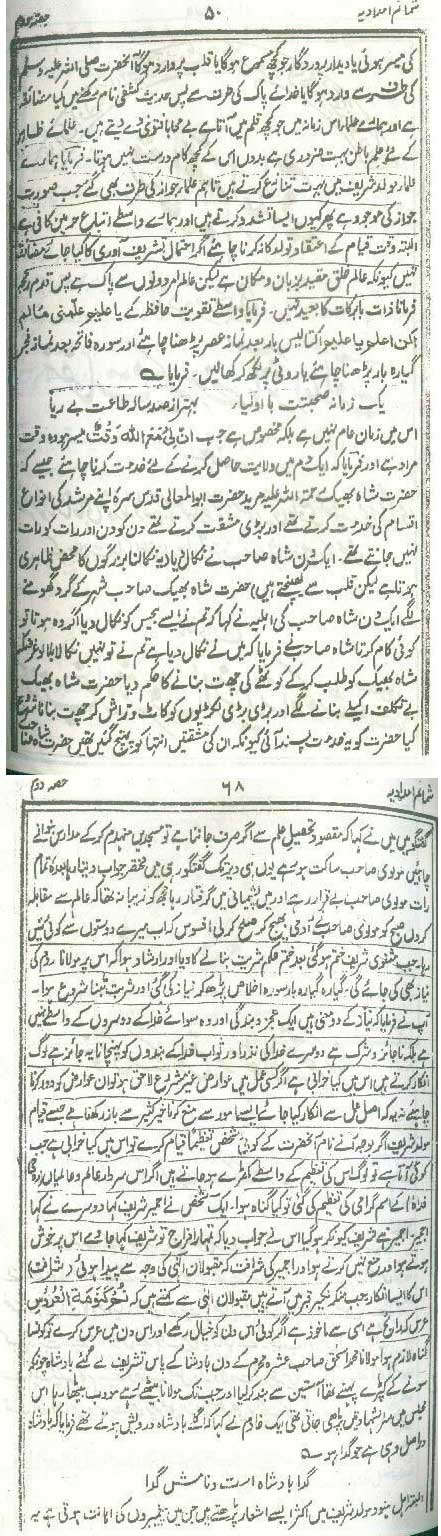 شمائم امدادیہ ۵۰ حصہ دوم
کی میسر ہوئی یا دیدار پروردگار جو کچھ مسموع ہوگا یا قلب پر وارد ہوگا آنحضرت صلی اللہ علیہ وسلم
کی طرف سے وارد ہوگا یا خدائے پاک کی طرف سے پس حدیث کشفی نام رکھنے میں کیا مضائقہ
ہے اور ہمارے علماء اس زمانہ میں جو کچھ قلم میں آتا ہے بے محابا فتویٰ دے دیتے ہیں۔ علمائے ظاہر
کے لئے علم باطن بہت ضروری ہے بدوں اس کے کچھ کام درست نہیں ہوتا۔ فرمایا ہمارے
علماء مولد شریف میں بہت تنازع کرتے ہیں تاہم علماء جواز کی طرف بھی گئے جب صورت
جواز کی موجود ہے پھر کیوں ایسا تشدد کرتے ہیں اور ہمارے واسطے اتباع حرمین کافی ہے
البتہ وقت قیام کے اعتقاد تولد کا نہ کرنا چاہئے اگر احتمال تشریف آوری کا کیا جائے مضائقہ
نہیں کیونکہ عالم خلق مقید بزمان و مکان ہے لیکن عالم امر دونوں سے پاک ہے پس قدم رنجہ
فرمانا ذات بابرکات کا بعید نہیں۔ فرمایا واسطے تقویت حافظہ کے یا علیم علمنی مالم
اکن اعلم یا علیم اکتالیس بار بعد نماز عصر پڑھنا چاہئے اور سورہ فاتحہ بعد نماز فجر
گیارہ بار پڑھنا چاہئے یا روٹی پر لکھ کر کھالیں۔ فرمایا ؎
یک زمانہ صحبتت با اولیاء بہتر از صد سالہ طاعت بے ریا
اس میں زمان عام نہیں ہے بلکہ مخصوص ہے جب ان لی مع اللہ وقت میسر ہو وہ وقت
مراد ہے اور فرمایا کہ ایک دم میں ولایت حاصل کرنے کے لئے خدمت کرنا چاہئے جیسے کہ
حضرت شاہ بھیک رحمۃ اللہ علیہ مرید حضرت ابو المعالی قدس سرہ اپنے مرشد کی انواع
اقسام کی خدمت کرتے تھے اور بڑی مشقت کرتے تھے دن کو دن اور رات کو رات
نہیں جانتے تھے۔ ایک دن شاہ صاحب نے نکال دیا (یہ نکالنا بزرگوں کا محض ظاہری
ہوتا ہے لیکن قلب سے کھینچتے ہیں) حضرت شاہ بھیک صاحب شہر کے گرد گھومنے
لگے ایک دن شاہ صاحب کی اہلیہ نے کہا کہ تم نے ایسے بجس کو نکال دیا اگر وہ ہوتا تو
کوئی کام کرتا شاہ صاحب نے فرمایا کہ میں نے نکال دیا ہے تم نے تو نہیں نکالا بلالو غرضکہ
شاہ بھیک کو طلب کر کے کوٹھے کی چھت بنانے کا حکم دیا حضرت شاہ بھیک
بے تکلف اکیلے بنانے لگے اور بڑی بڑی لکڑیوں کو کاٹ و تراش کر چھت بنانا شروع
کیا حضرت کو یہ خدمت پسند آئی کیونکہ ان کی مشقتیں انتہا کو پہنچ گئیں تھیں حضرت شاہ صاحب
شمائم امدادیہ ۶۸ حصہ دوم
گفتگو میں میں نے کہا کہ مقصود تحصیل علم سے اگر صرف جاننا ہے تو مسجدیں منہدم کر کے مدارس بنوانے
چاہئیں مولوی صاحب ساکت ہوئے یوں ہی دیر تک گفتگو رہی میں مختصر جواب دیتا رہا بعدہ تمام
رات مولوی صاحب بے قرار رہے اور میں پشیمانی میں گرفتار رہا مجھ کو زیبا نہ تھا کہ عالم سے مقابلہ
کروں صبح کو مولوی صاحب نے آدمی بھیج کر صلح کر لی افسوس کہ اب میرے دوستوں سے کوئی نہیں
رہا۔ جب مثنوی شریف ختم ہوگئی بعد ختم حکم شربت بنانے کا دیا اور ارشاد ہوا کہ اس پر مولانا روم کی
نیاز بھی کی جائے گی۔ گیارہ گیارہ بار سورہ اخلاص پڑھ کر نیاز کی گئی اور شربت بٹنا شروع ہوا۔
آپ نے فرمایا کہ نیاز کے دو معنی ہیں ایک عجز و بندگی اور وہ سوائے خدا کے دوسروں کے واسطے نہیں
ہے بلکہ ناجائز و شرک ہے دوسرے خدا کی نذر اور ثواب خدا کے بندوں کو پہنچانا یہ جائز ہے لوگ
انکار کرتے ہیں اس میں کیا خرابی ہے اگر کسی عمل میں عوارض غیر مشروع لاحق ہوں تو ان عوارض کو دور کرنا
چاہئے نہ یہ کہ اصل عمل سے انکار کیا جائے ایسے امور سے منع کرنا خیر کثیر سے باز رکھنا ہے جیسے قیام
مولد شریف اگر بوجہ آنے نام آنحضرت کے کوئی شخص تعظیماً قیام کرے تو اس میں کیا خرابی ہے جب
کوئی آتا ہے تو لوگ اس کی تعظیم کے واسطے کھڑے ہو جاتے ہیں اگر اس سردار عالم و عالمیان (روحی
فداہ) کے اسم گرامی کی تعظیم کی گئی تو کیا گناہ ہوا۔ ایک شخص نے اجمیر شریف کہا دوسرے نے کہا
اجمیر، اجمیر ہے شریف کیونکر ہو گیا اس نے جواب دیا کہ تمہارا مزاج تو شریف کہا جائے اس پر خوش
ہوتے ہو اور منع نہیں کرتے ہو اور اجمیر کی شرافت کہ مقبولان الٰہی کی وجہ سے پیدا ہوئی
اس کا ایسا انکار جب منکر نکیر قبر میں آتے ہیں مقبولان الٰہی سے کہتے ہیں کہ نم کنومۃ العروس
عرس کہ رائج ہے اسی سے ماخوذ ہے اگر کوئی اس دن کو خیال رکھے اور اس دن میں عرس کرے تو کونسا
گناہ لازم ہوا مولانا محمد اسحٰق صاحب عشرہ محرم کے دن بادشاہ کے پاس تشریف لے گئے بادشاہ چونکہ
سونے کے کڑے پہنے تھا آستین سے بند کر لیا اور جب تک مولانا بیٹھے رہے مودب بیٹھا رہا اس
مجلس میں سر الشہادتین پڑھی جاتی تھی ایک خادم نے کہا کہ اگلے بادشاہ درویش ہوتے تھے فرمایا کہ بادشاہ
دراصل وہی ہے جو گدا ہو ؎
گدا بادشاہ است و نامش گدا
البتہ اہل ہنود مولد شریف میں اکثر ایسے اشعار پڑھتے ہیں جن میں پیغمبروں کی اہانت ہوتی ہے یہ